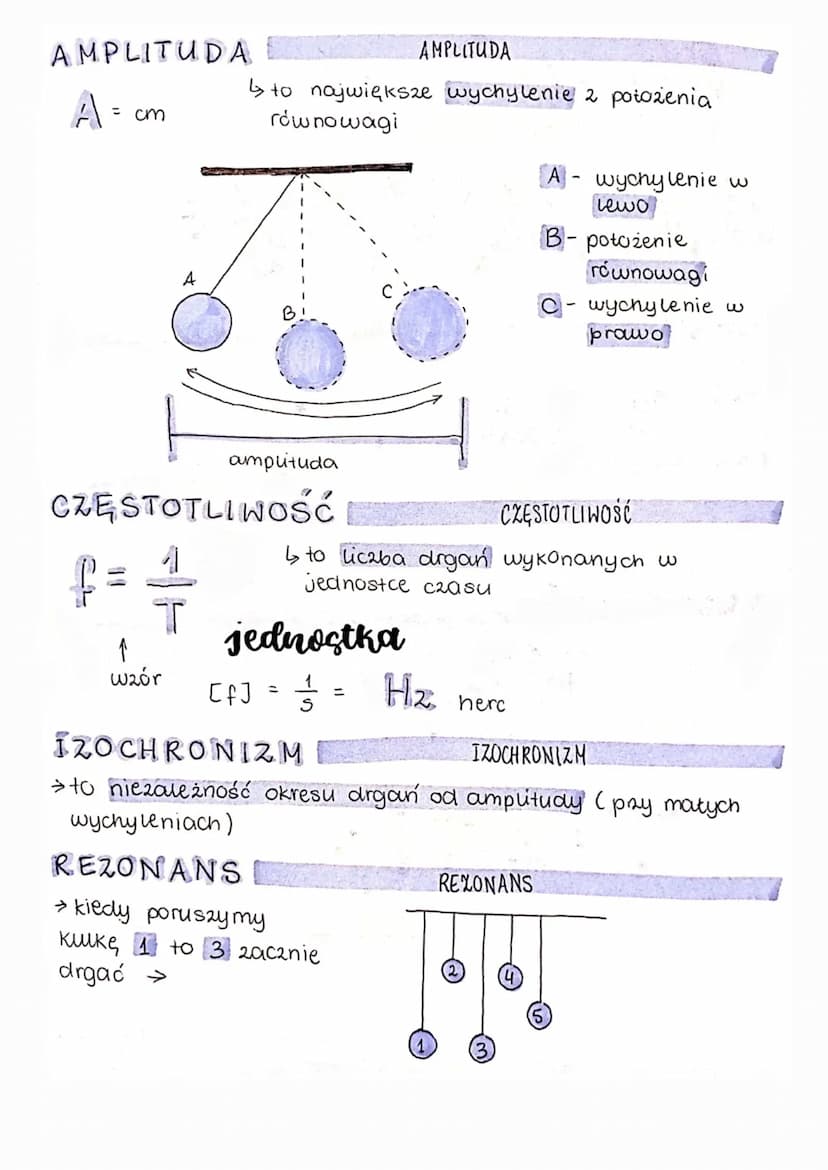 AMPLITUDA
AMPLITUDA
A = cm
↳ to największe wychylenie z położenia
równowagi
A - wychylenie w
lewo
B - położenie
równowagi
C - wychylenie w
prawo
A
B
C
amplituda
CZĘSTOTLIWOŚĆ
CZĘSTOTLIWOŚĆ
f = 1/T
↳ to liczba drgań wykonanych w
jednostce czasu
↑
wzór
jednostka
[f] = 1/s = Hz herc
IZOCHRONIZM
IZOCHRONIZM
→ to niezależność okresu drgań od amplitudy (przy małych
wychyleniach)
REZONANS
REZONANS
→ kiedy poruszymy
kulkę 1 to 3 zacznie
drgać →
2
4
5
1
3